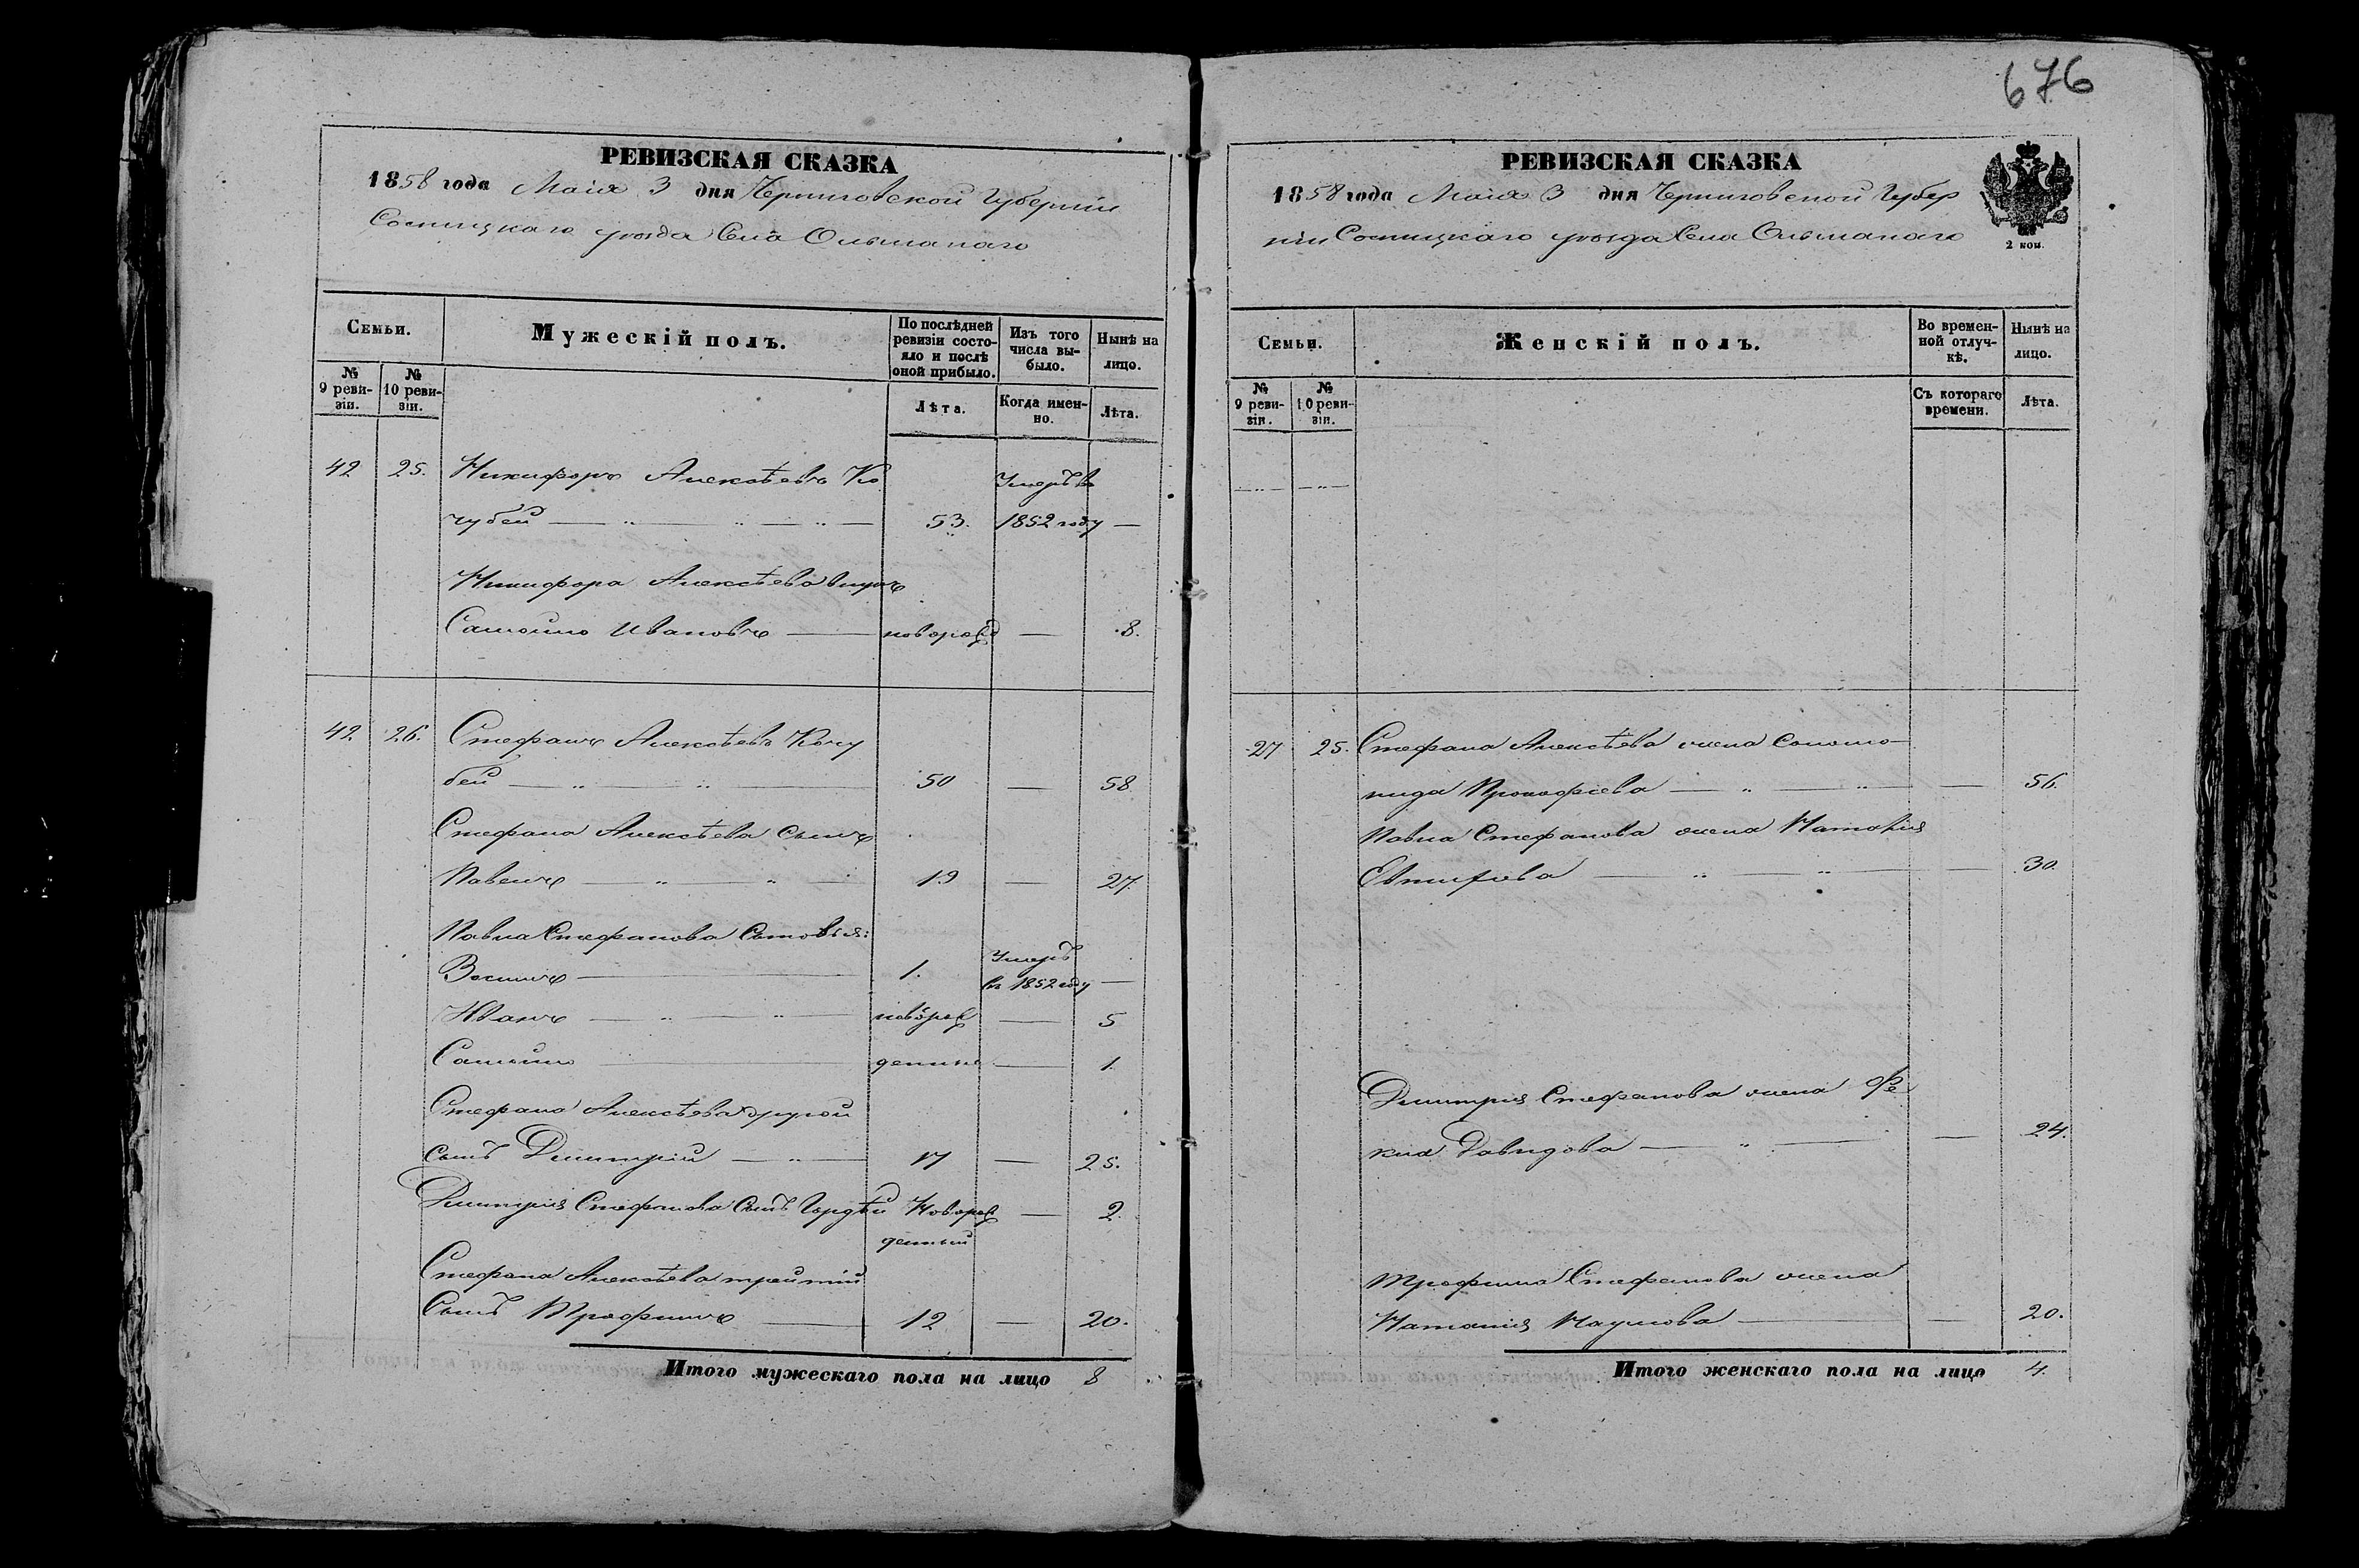 676
РЕВИЗСКАЯ СКАЗКА
1858 года Маія 3 дня Черниговской Губерніи
Сосницкаго уѣзда Села Ольшанаго
Семьи.
Мужескій полъ.
По послѣдней ревизіи состояло и послѣ оной прибыло.
Изъ того числа выбыло.
Нынѣ на лицо.
№ 9 ревизіи.
№ 10 ревизіи.
Лѣта.
Когда именно.
Лѣта.
42 25. Никифоръ Алексѣевъ Ко Умеръ въ
чубей 53. 1852 году —
Никифора Алексѣева внукъ
Самойло Ивановъ новорожд — 8.
42 26. Стефанъ Алексѣевъ Кочу
бей 50 — 58
Стефана Алексѣева Сынъ
Павелъ 19 — 27.
Павла Стефанова Сыновья: Умеръ
1. въ 1852 году —
Иванъ новорож — 5
Самойло денные — 1.
Стефана Алексѣева другой
Сынъ Димитрій 17 — 25.
Димитрія Стефанова Сынъ Гордѣй Новорож — 2.
денный
Стефана Алексѣева третій
Сынъ Трофимъ 12 — 20.
Итого мужескаго пола на лицо 8
РЕВИЗСКАЯ СКАЗКА
1858 года Маія 3 дня Черниговской Губер
ніи Сосницкаго уѣзда Села Ольшанаго
2 коп.
Семьи.
Женскій полъ.
Во временной отлучкѣ.
Нынѣ на лицо.
№ 9 ревизіи.
№ 10 ревизіи.
Съ котораго времени.
Лѣта.
27 25. Стефана Алексѣева жена Соломо-
нида Прокофіева — 56.
Павла Стефанова жена Наталія
Евтихіева — 30.
Димитрія Стефанова жена Фе
кла Давидова — 24.
Трофима Стефанова жена
Наталія Наумова — 20.
Итого женскаго пола на лицо 4.